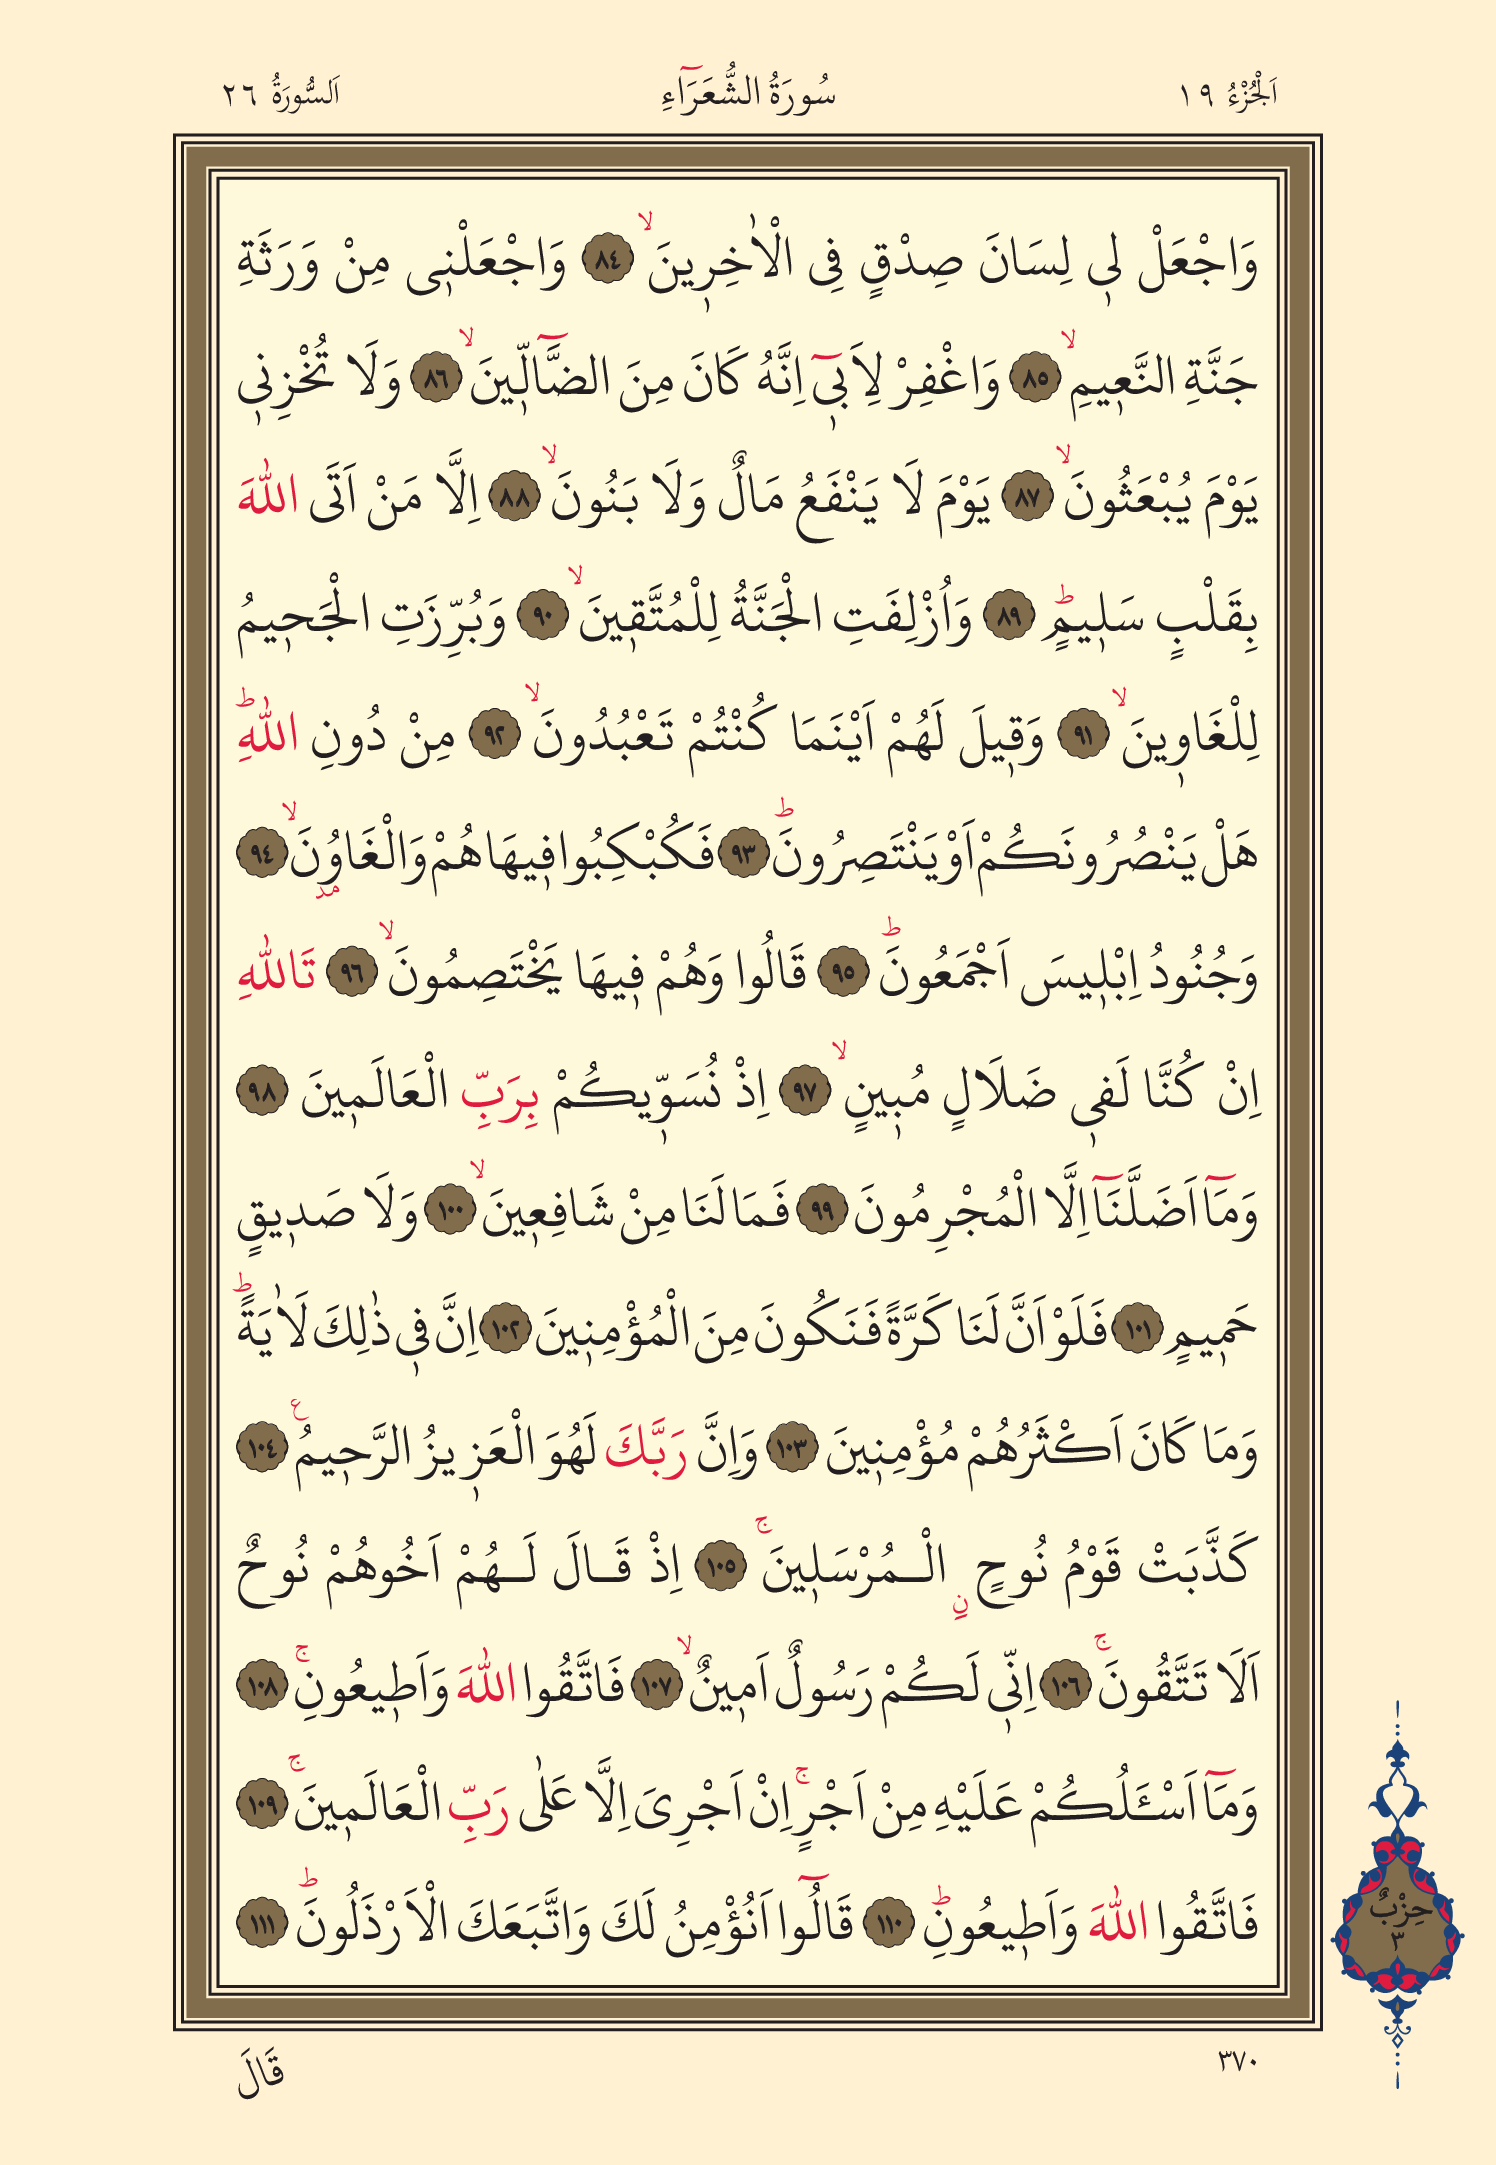 اَلْجُزْءُ ١٩
سُورَةُ الشُّعَرَٓاءِ
اَلسُّورَةُ ٢٦
وَاجْعَلْ لٖي لِسَانَ صِدْقٍ فِى الْاٰخِرٖينَۙ ﴿٨٤﴾ وَاجْعَلْنٖى مِنْ وَرَثَةِ
جَنَّةِ النَّعٖيمِۙ ﴿٨٥﴾ وَاغْفِرْ لِاَبٖٓى اِنَّهُ كَانَ مِنَ الضَّٓالّٖينَۙ ﴿٨٦﴾ وَلَا تُخْزِنٖى
يَوْمَ يُبْعَثُونَۙ ﴿٨٧﴾ يَوْمَ لَا يَنْفَعُ مَالٌ وَلَا بَنُونَۙ ﴿٨٨﴾ اِلَّا مَنْ اَتَى اللّٰهَ
بِقَلْبٍ سَلٖيمٍؕ ﴿٨٩﴾ وَاُزْلِفَتِ الْجَنَّةُ لِلْمُتَّقٖينَۙ ﴿٩٠﴾ وَبُرِّزَتِ الْجَحٖيمُ
لِلْغَاوٖينَۙ ﴿٩١﴾ وَقٖيلَ لَهُمْ اَيْنَمَا كُنْتُمْ تَعْبُدُونَۙ ﴿٩٢﴾ مِنْ دُونِ اللّٰهِؕ
هَلْ يَنْصُرُونَكُمْ اَوْ يَنْتَصِرُونَؕ ﴿٩٣﴾ فَكُبْكِبُوا فٖيهَا هُمْ وَالْغَاوُنَۙ ﴿٩٤﴾
مد
وَجُنُودُ اِبْلٖيسَ اَجْمَعُونَؕ ﴿٩٥﴾ قَالُوا وَهُمْ فٖيهَا يَخْتَصِمُونَۙ ﴿٩٦﴾ تَاللّٰهِ
اِنْ كُنَّا لَفٖى ضَلَالٍ مُبٖينٍۙ ﴿٩٧﴾ اِذْ نُسَوّٖيكُمْ بِرَبِّ الْعَالَمٖينَ ﴿٩٨﴾
وَمَٓا اَضَلَّنَٓا اِلَّا الْمُجْرِمُونَ ﴿٩٩﴾ فَمَا لَنَا مِنْ شَافِعٖينَۙ ﴿١٠٠﴾ وَلَا صَدٖيقٍ
حَمٖيمٍ ﴿١٠١﴾ فَلَوْ اَنَّ لَنَا كَرَّةً فَنَكُونَ مِنَ الْمُؤْمِنٖينَ ﴿١٠٢﴾ اِنَّ فٖى ذٰلِكَ لَاٰيَةًؕ
وَمَا كَانَ اَكْثَرُهُمْ مُؤْمِنٖينَ ﴿١٠٣﴾ وَاِنَّ رَبَّكَ لَهُوَ الْعَزٖيزُ الرَّحٖيمُ ع ﴿١٠٤﴾
كَذَّبَتْ قَوْمُ نُوحٍ نِ الْمُرْسَلٖينَۚ ﴿١٠٥﴾ اِذْ قَالَ لَهُمْ اَخُوهُمْ نُوحٌ
اَلَا تَتَّقُونَۚ ﴿١٠٦﴾ اِنّٖى لَكُمْ رَسُولٌ اَمٖينٌۙ ﴿١٠٧﴾ فَاتَّقُوا اللّٰهَ وَاَطٖيعُونِۚ ﴿١٠٨﴾
وَمَٓا اَسْـَٔلُكُمْ عَلَيْهِ مِنْ اَجْرٍۚ اِنْ اَجْرِىَ اِلَّا عَلٰى رَبِّ الْعَالَمٖينَۚ ﴿١٠٩﴾
فَاتَّقُوا اللّٰهَ وَاَطٖيعُونِؕ ﴿١١٠﴾ قَالُٓوا اَنُؤْمِنُ لَكَ وَاتَّبَعَكَ الْاَرْذَلُونَؕ ﴿١١١﴾
حِزْبٌ
٣
٣٧٠
قَالَ